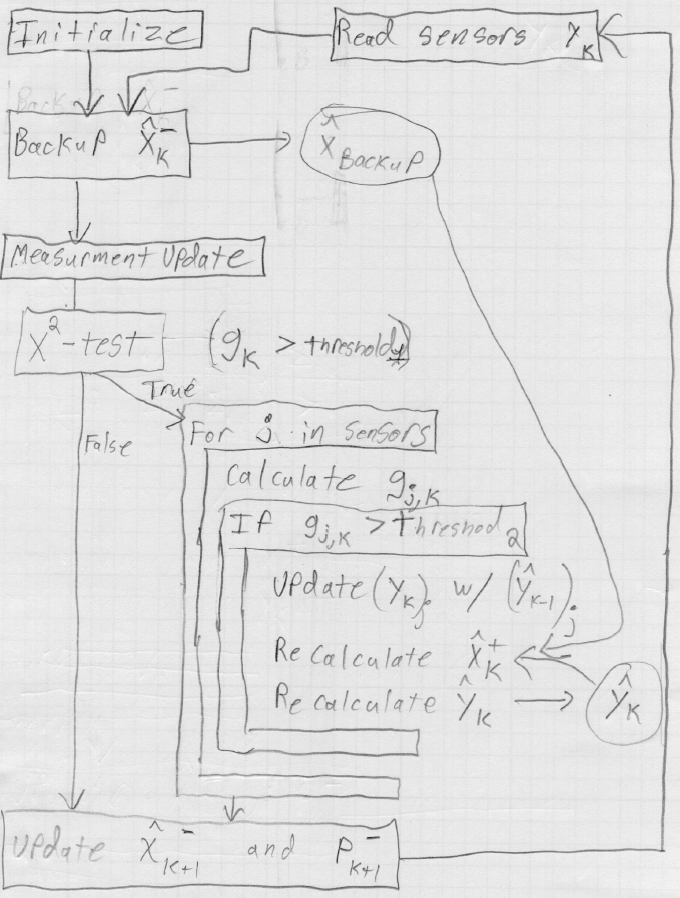 Initialize
Read sensors y_K
Backup x̂_K^-
x̂_Backup
Measurment Update
X^2-test (g_K > threshold_1)
True
False
For j in sensors
Calculate g_j,K
If g_j,K > threshod_2
Update (y_K)_j w/ (ŷ_K-1)_j
Recalculate x̂_K^+
Recalculate ŷ_K
ŷ_K
Update x̂_K+1^- and P_K+1^-